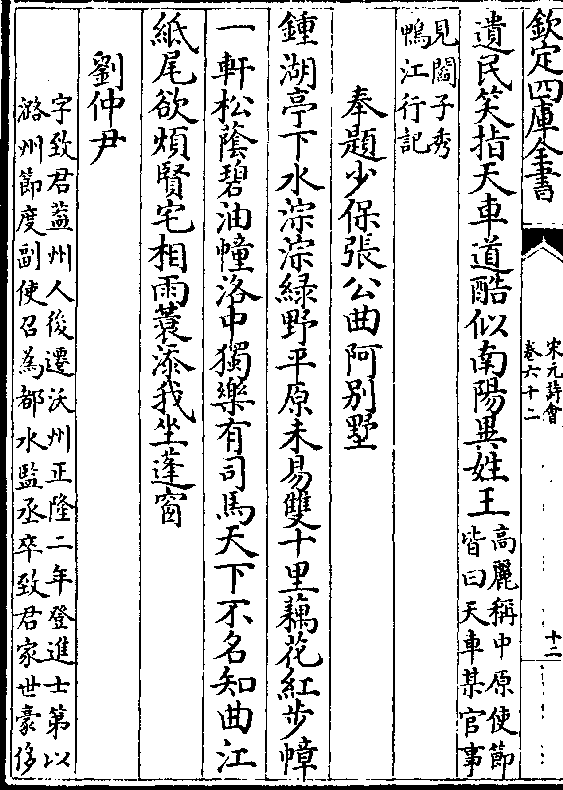 欽定四庫全書
宋元詩會
卷六十二
十二
遺民笑指天車道酷似南陽異姓王
高麗稱中原使節
皆曰天車某官事
見閻子秀
鴨江行記
奉題少保張公曲阿別墅
鍾湖亭下水淙淙綠野平原未易雙十里藕花紅步幛
一軒松蔭碧油幢洛中獨樂有司馬天下不名知曲江
紙尾欲煩賢宅相雨蓑添我坐蓬窗
劉仲尹
字致君蓋州人後遷沃州正隆二年登進士第以
潞州節度副使召為都水監丞卒致君家世豪侈